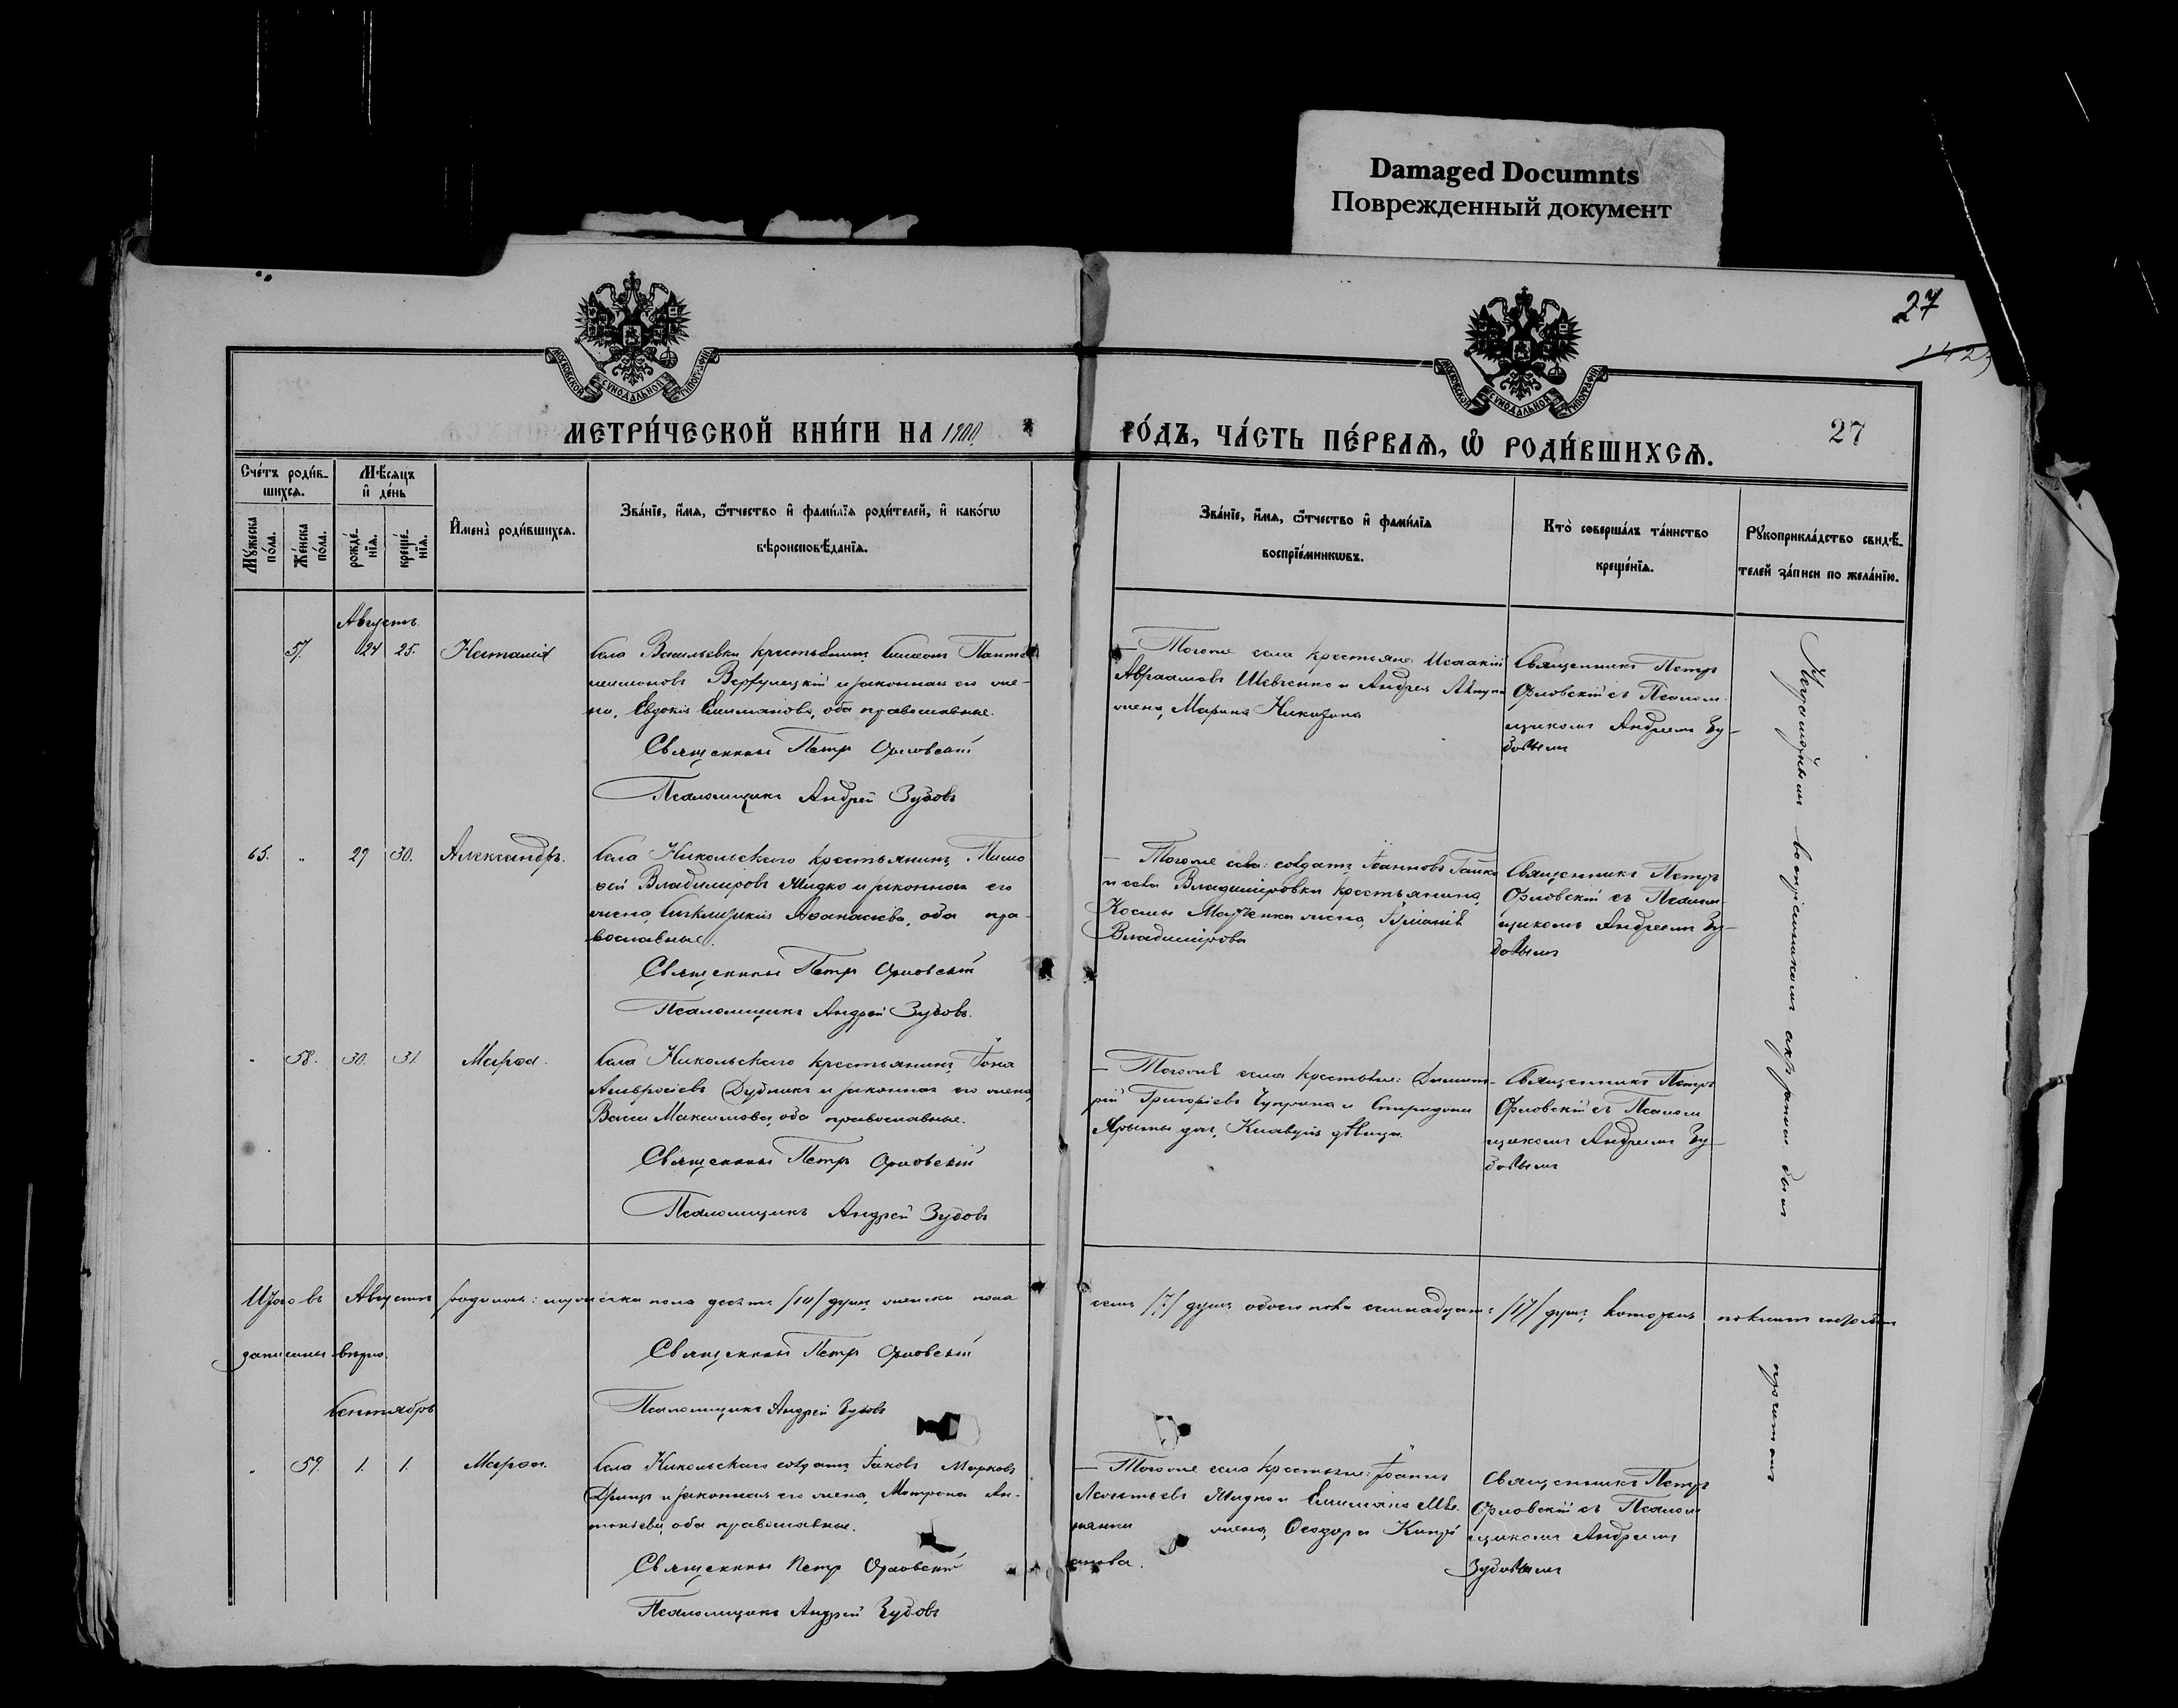 Damaged Documnts
Поврежденный документ
27
МОСКОВСКОЙ СУНОДАЛЬНОЙ ТИПОГРАФІИ
МОСКОВСКОЙ СУНОДАЛЬНОЙ ТИПОГРАФІИ
МЕТРИ́ЧЕСКОЙ КНИ́ГИ НА 1900
ГО́ДЪ, ЧА́СТЬ ПЕ́РВАЯ, Ѡ РОДИ́ВШИХСЯ.
27
Сче́тъ роди́в-
шихся.
Мѣ́сяцъ
и де́нь
Му́жеска по́ла.
Же́нска по́ла.
рожде́-нія.
креще́-нія.
Имена̀ роди́вшихся.
Зва́ніе, и́мя, ѻ́тчество и фами́лія роди́телей, и како́гѡ
вѣроисповѣ́данія.
Зва́ніе, и́мя, ѻ́тчество и фами́лія
воспріе́мникѡвъ.
Кто̀ соверша́лъ та́инство
креще́нія.
Рукоприкла́дство свидѣ́-
телей за́писи по жела́нію.
Августъ
57. 24 25. Наталія
Села Васильевки крестьянинъ Симеонъ Панте-
леимоновъ и законная его же-
на, Евдокія оба православные.
Священникъ Петръ Орловскій
Псаломщикъ Андрей Зубовъ
Тогоже села крестьяне: Исаакій
Авраамовъ Шевченко и Андрея
жена, Марина
Священникъ Петръ
Орловскій съ Псалом-
щикомъ Андреемъ Зу-
бовымъ
65. " 29 30. Александръ.
Села Никольскаго крестьянинъ Тимо-
ѳей Владимировъ Жидко и законная его
жена, Аѳанасіева, оба пра-
вославные.
Священникъ Петръ Орловскій
Псаломщикъ Андрей Зубовъ.
Тогоже села: солдатъ Іоанновъ
и села Владиміровки крестьянина,
Космы жена,
Владимірова
Священникъ Петръ
Орловскій съ Псалом-
щикомъ Андреемъ Зу-
бовымъ
" 58. 30. 31 Марѳа.
Села Никольскаго крестьянинъ Іона
Амвросіевъ Дудникъ и законная его жена
Васса Максимова, оба православные.
Священникъ Петръ Орловскій
Псаломщикъ Андрей Зубовъ
Тогоже села крестьяне: Димит-
рій Григоріевъ Чуприна и Спиридона
дочь, Клавдія дѣвица.
Священникъ Петръ
Орловскій съ Псалом
щикомъ Андреемъ Зу-
бовымъ
Итого въ Августѣ родилось: мужеска пола десять /10/ душъ, женска пола
семь /7/ душъ, обоего пола семнадцать /17/ душъ,
записаны вѣрно.
Священникъ Петръ Орловскій
Псаломщикъ Андрей Зубовъ
Сентябрь
" 59. 1. 1. Марѳа.
Села Никольскаго солдатъ Іаковъ Марковъ
и законная его жена, Матрона Ан-
тоніева, оба православные.
Священникъ Петръ Орловскій
Псаломщикъ Андрей Зубовъ
Тогоже села крестьяне: Іоаннъ
Леонтьевъ Жидко и
жена, Ѳеодора
Священникъ Петръ
Орловскій съ Псалом
щикомъ Андреемъ
Зубовымъ